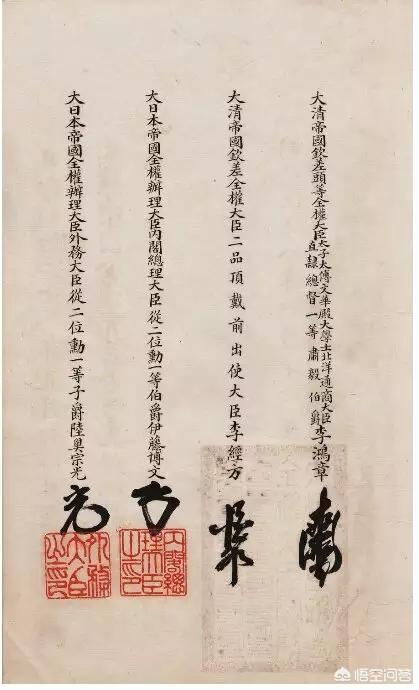 大清帝國欽差頭等全權大臣太子太傅文華殿大學士北洋通商大臣直隸總督一等肅毅伯爵李鴻章
大清帝國欽差全權大臣二品頂戴前出使大臣李經方
大日本帝國全權辦理大臣內閣總理大臣從二位勳一等伯爵伊藤博文
大日本帝國全權辦理大臣外務大臣從二位勳一等子爵陸奧宗光
悟空问答